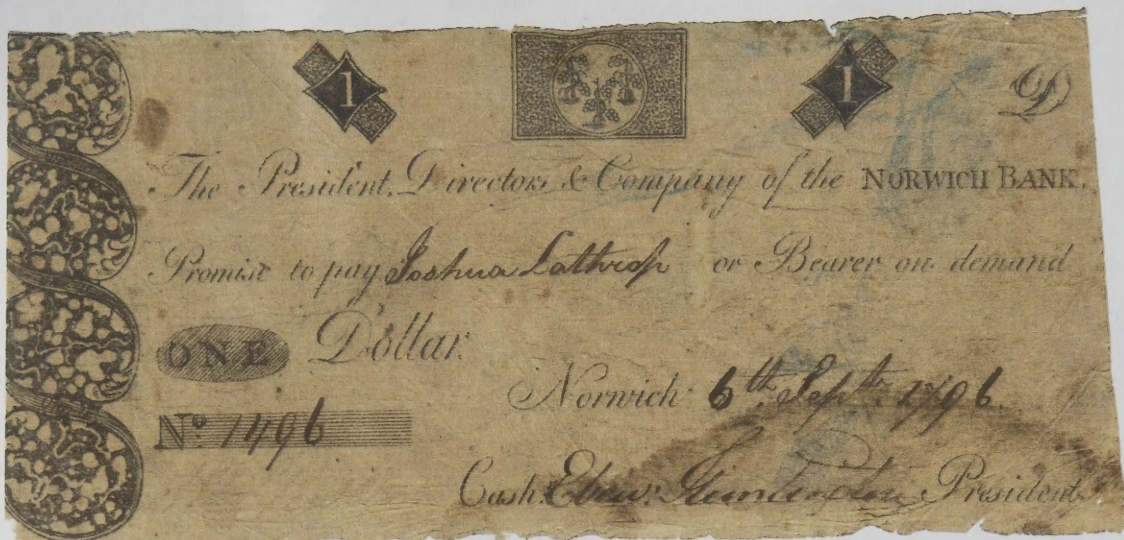 1 1 D
The President, Directors & Company of the NORWICH BANK,
Promise to pay Joshua Lathrop or Bearer on demand
ONE Dollar.
Norwich 6th Sept. 1796.
No. 1496
Cash. Eben: Huntington President